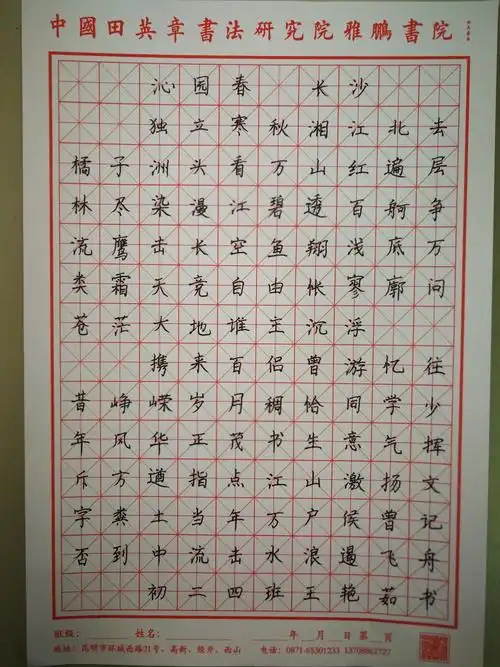 中國田英章書法研究院雅鵬書院
沁园春 长沙
独立寒秋湘江北去
橘子洲头看万山红遍层
林尽染漫江碧透百舸争
流鹰击长空鱼翔浅底万
类霜天竞自由怅寥廓问
苍茫大地谁主沉浮
携来百侣曾游忆往
昔峥嵘岁月稠恰同学少
年风华正茂书生意气挥
斥方遒指点江山激扬文
字粪土当年万户侯曾记
否到中流击水浪遏飞舟
初二四班王艳茹书
班级: 姓名: 年 月 日 第 页
地址: 昆明市环城西路21号、高新、经开、西山 电话: 0871-65301233 13708862727